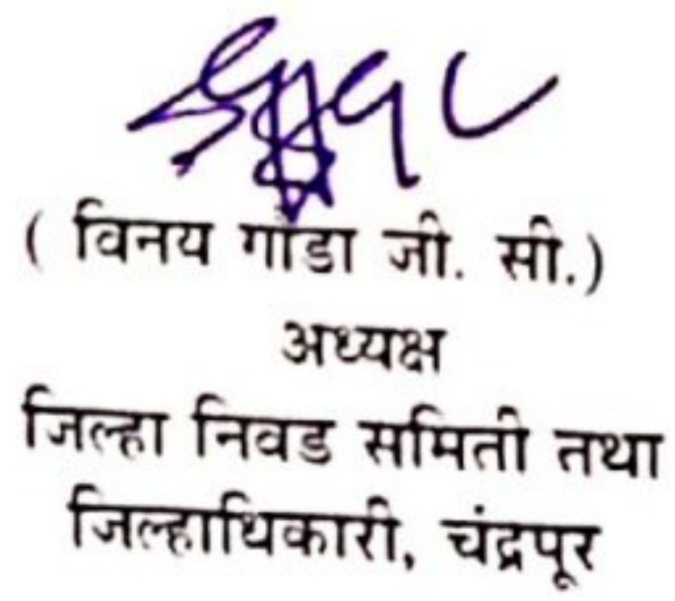 ( विनय गौडा जी. सी.)
अध्यक्ष
जिल्हा निवड समिती तथा
जिल्हाधिकारी, चंद्रपूर